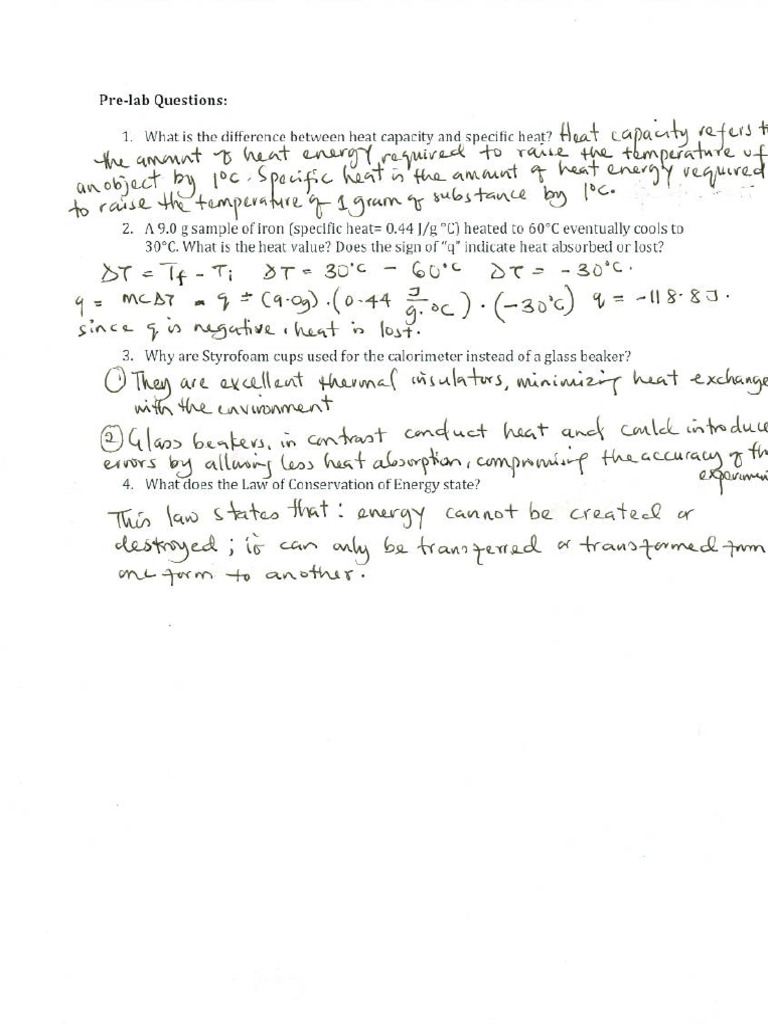 Pre-lab Questions:
1. What is the difference between heat capacity and specific heat? Heat capacity refers t
the amount of heat energy required to raise the temperature of
an object by 1°C. Specific heat is the amount of heat energy required
to raise the temperature of 1 gram of substance by 1°C.
2. A 9.0 g sample of iron (specific heat= 0.44 J/g °C) heated to 60°C eventually cools to
30°C. What is the heat value? Does the sign of "q" indicate heat absorbed or lost?
ΔT = Tf - Ti ΔT = 30°C - 60°C ΔT = -30°C.
q = mcΔT = q = (9.0g) · (0.44 J/g.°C) · (-30°C) q = -118.8J.
since q is negative, heat is lost.
3. Why are Styrofoam cups used for the calorimeter instead of a glass beaker?
① They are excellent thermal insulators, minimizing heat exchange
with the environment
② Glass beakers, in contrast conduct heat and could introduce
errors by allowing less heat absorption, compromising the accuracy of th
experimen
4. What does the Law of Conservation of Energy state?
This law states that : energy cannot be created or
destroyed ; it can only be transferred or transformed from
one form to another.